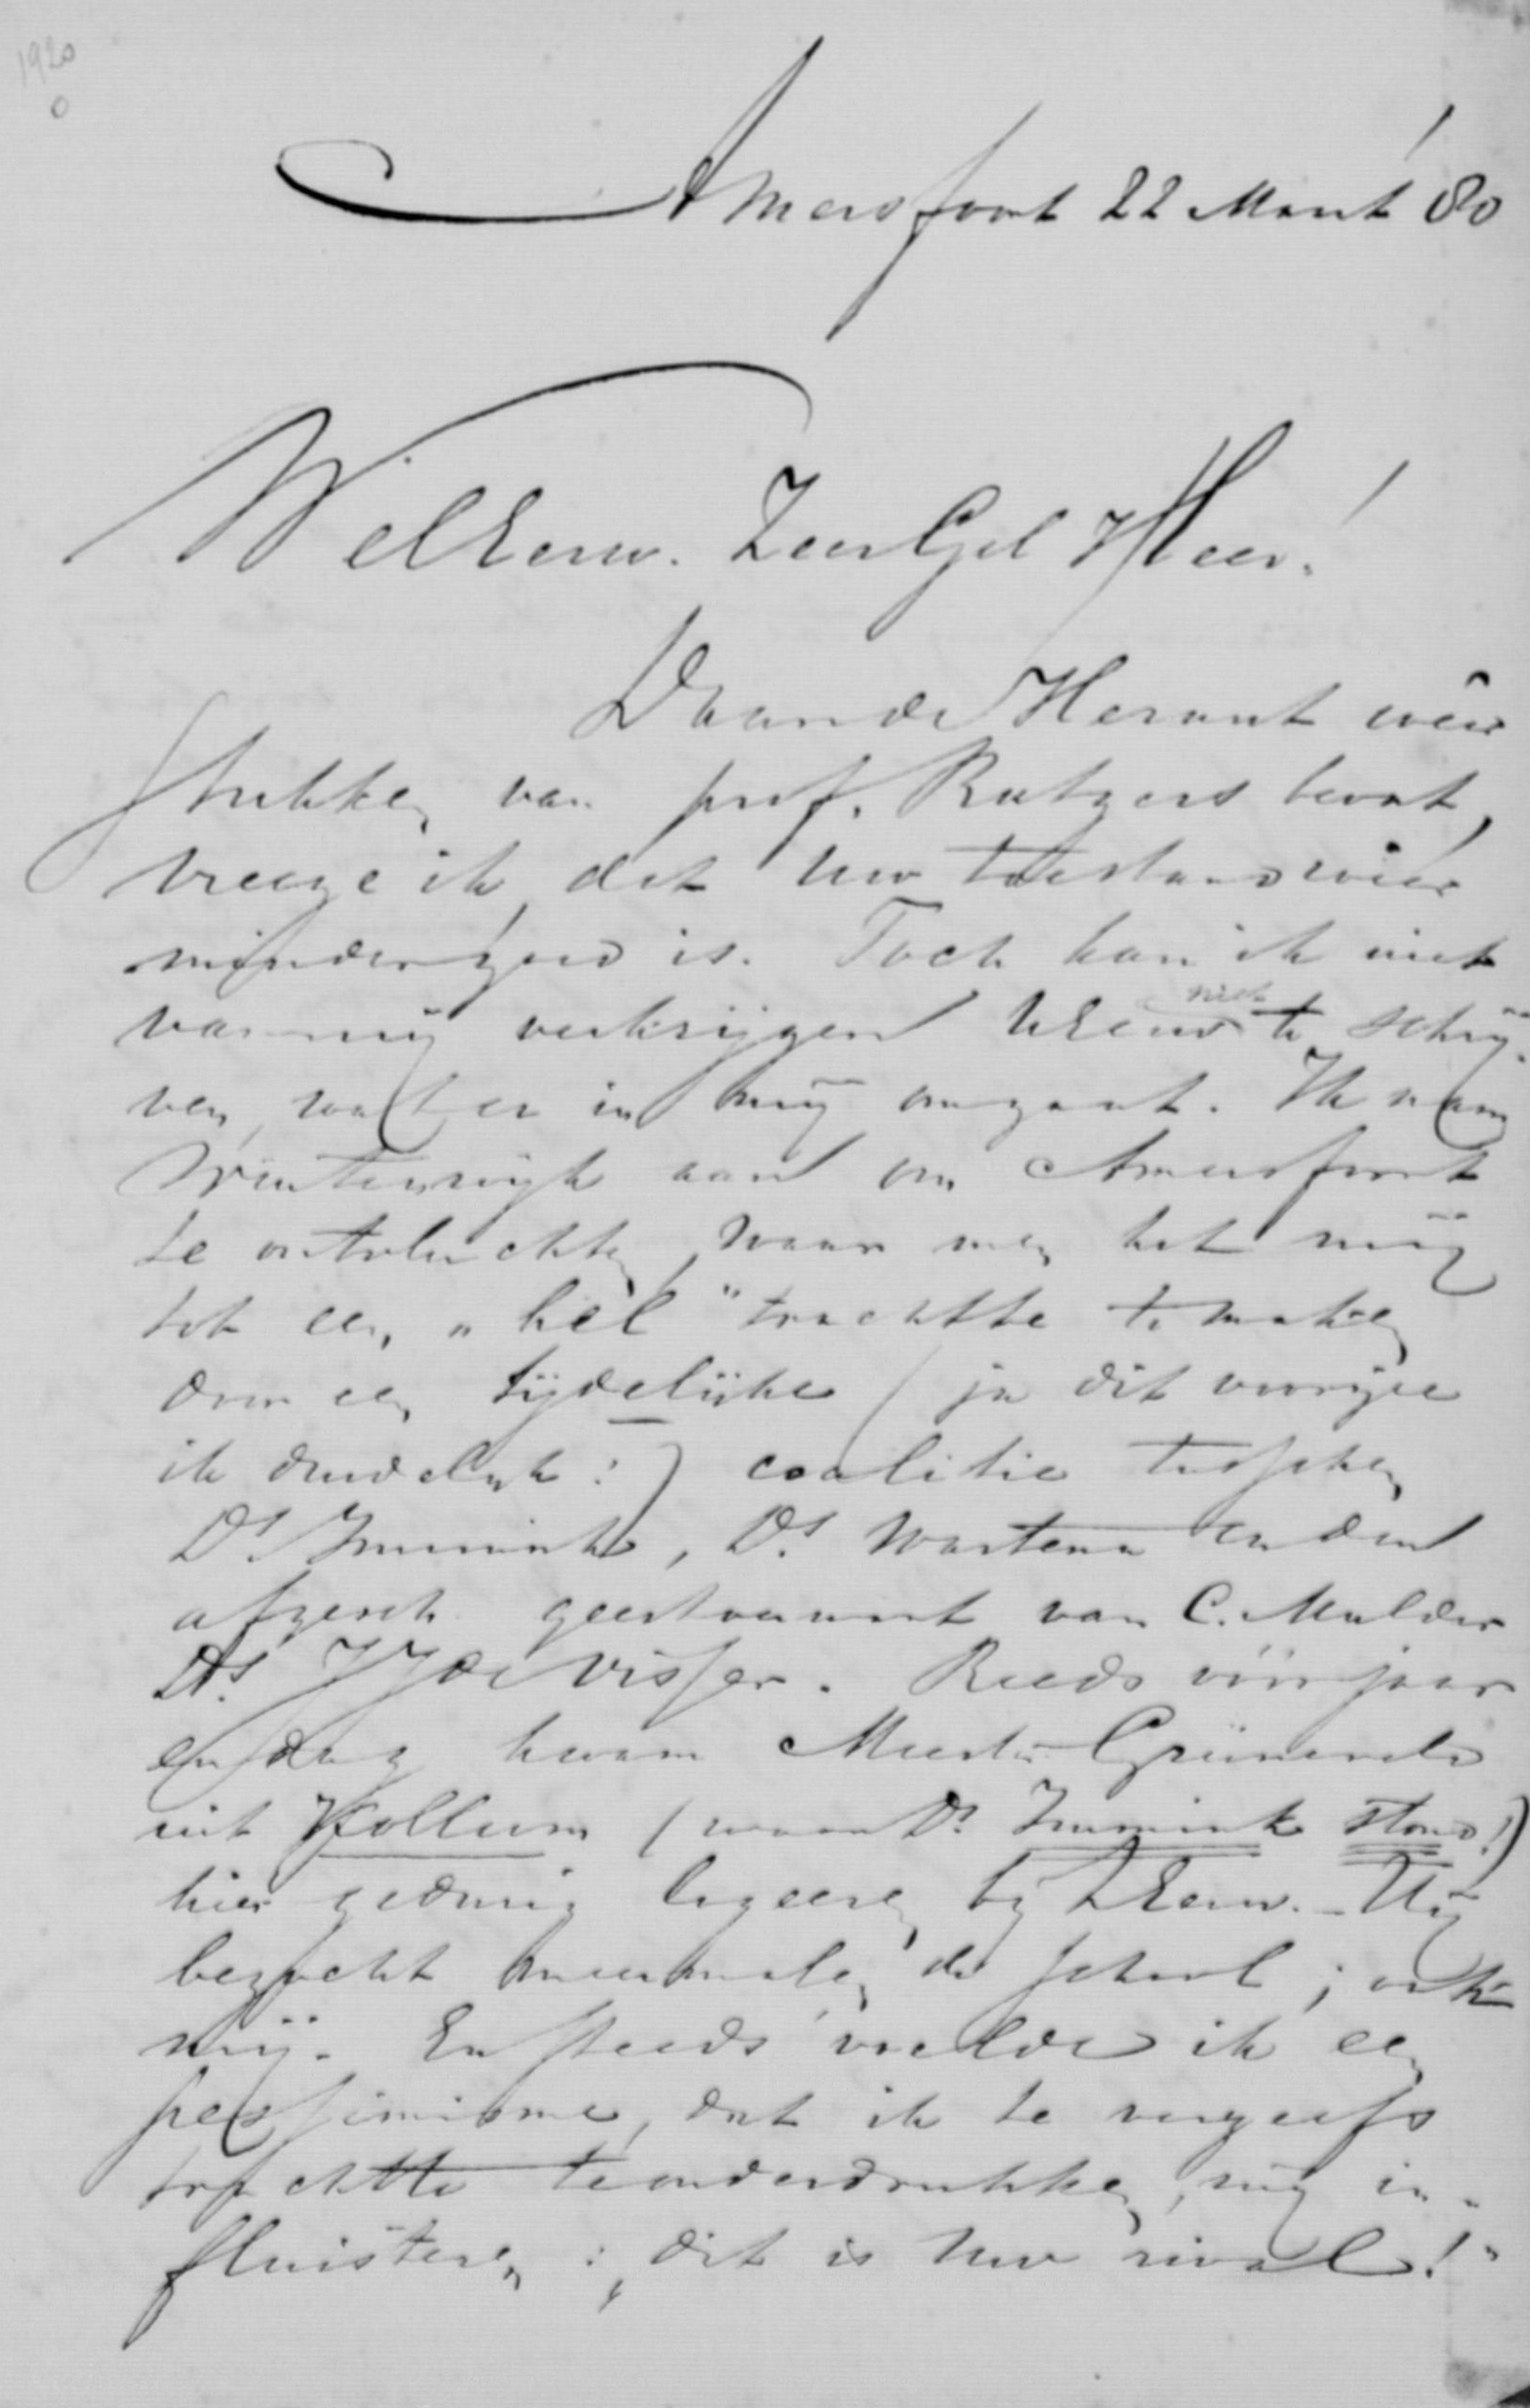 1920
0
Amersfoort 22 Maart '80
WelEerw. ZeerGel Heer!
Daar de Heraut weêr
stukken van prof. Rutgers bevat,
vreeze ik dat Uw toestand weêr
minder goed is. Toch kan ik niet
van mij verkrijgen UEerw niet te schrij-
ven, wat er in mij omgaat. Ik nam
Winterswijk aan om Amersfoort
te ontvluchten, waar men het mij
tot een „hel" trachtte te maken
door een tijdelijke (ja dit voorzie
ik duidelijk!) coalitie tusschen
Ds Immink, Ds. Wartena en den
afgesch. geestverwant van C. Mulder
Ds. JJ de Visser. Reeds vóór jaar
en dag kwam Meester Grünewald
uit Kollum (waar Ds Immink stond!)
hier gedurig logeeren bij ZEerw. - Hij
bezocht meermalen de school; ook
mij. En steeds voelde ik een
pessimisme, dat ik te vergeefs
trachtte te onderdrukken, mij in-
fluisteren: „dit is Uw rival!"